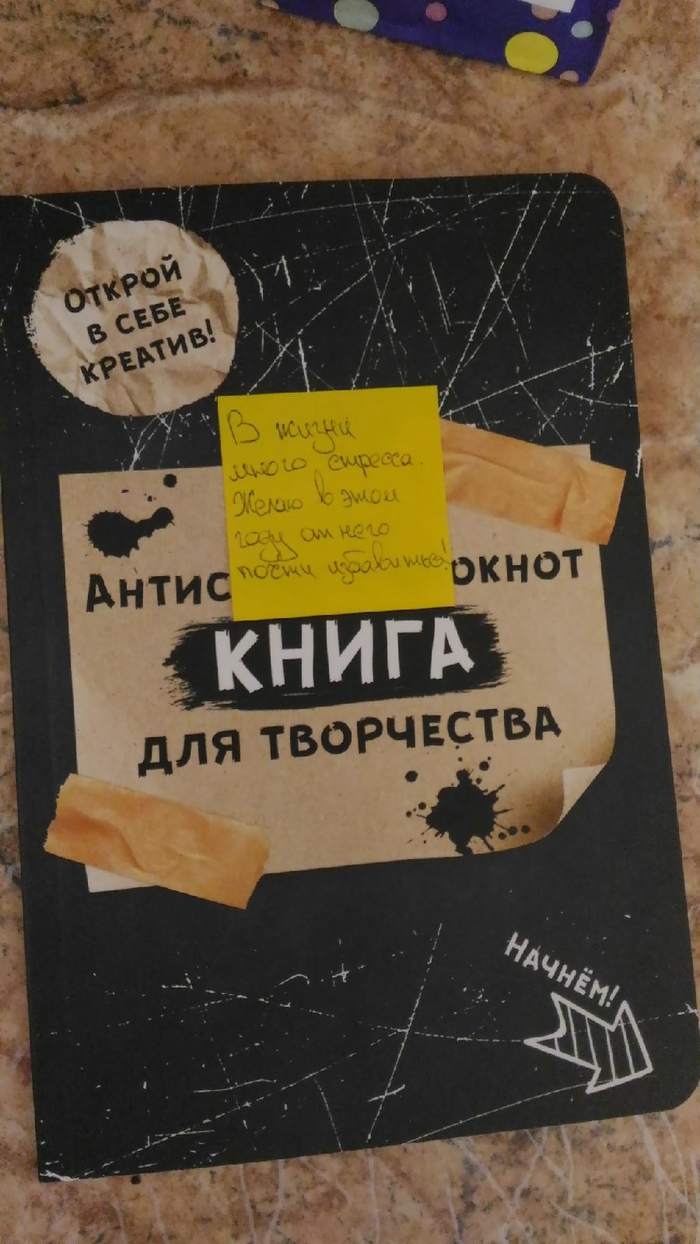 ОТКРОЙ
В СЕБЕ
КРЕАТИВ!
В жизни
много стресса.
Желаю в этом
году от него
почти избавиться!
АНТИС ОКНОТ
КНИГА
ДЛЯ ТВОРЧЕСТВА
НАЧНЁМ!